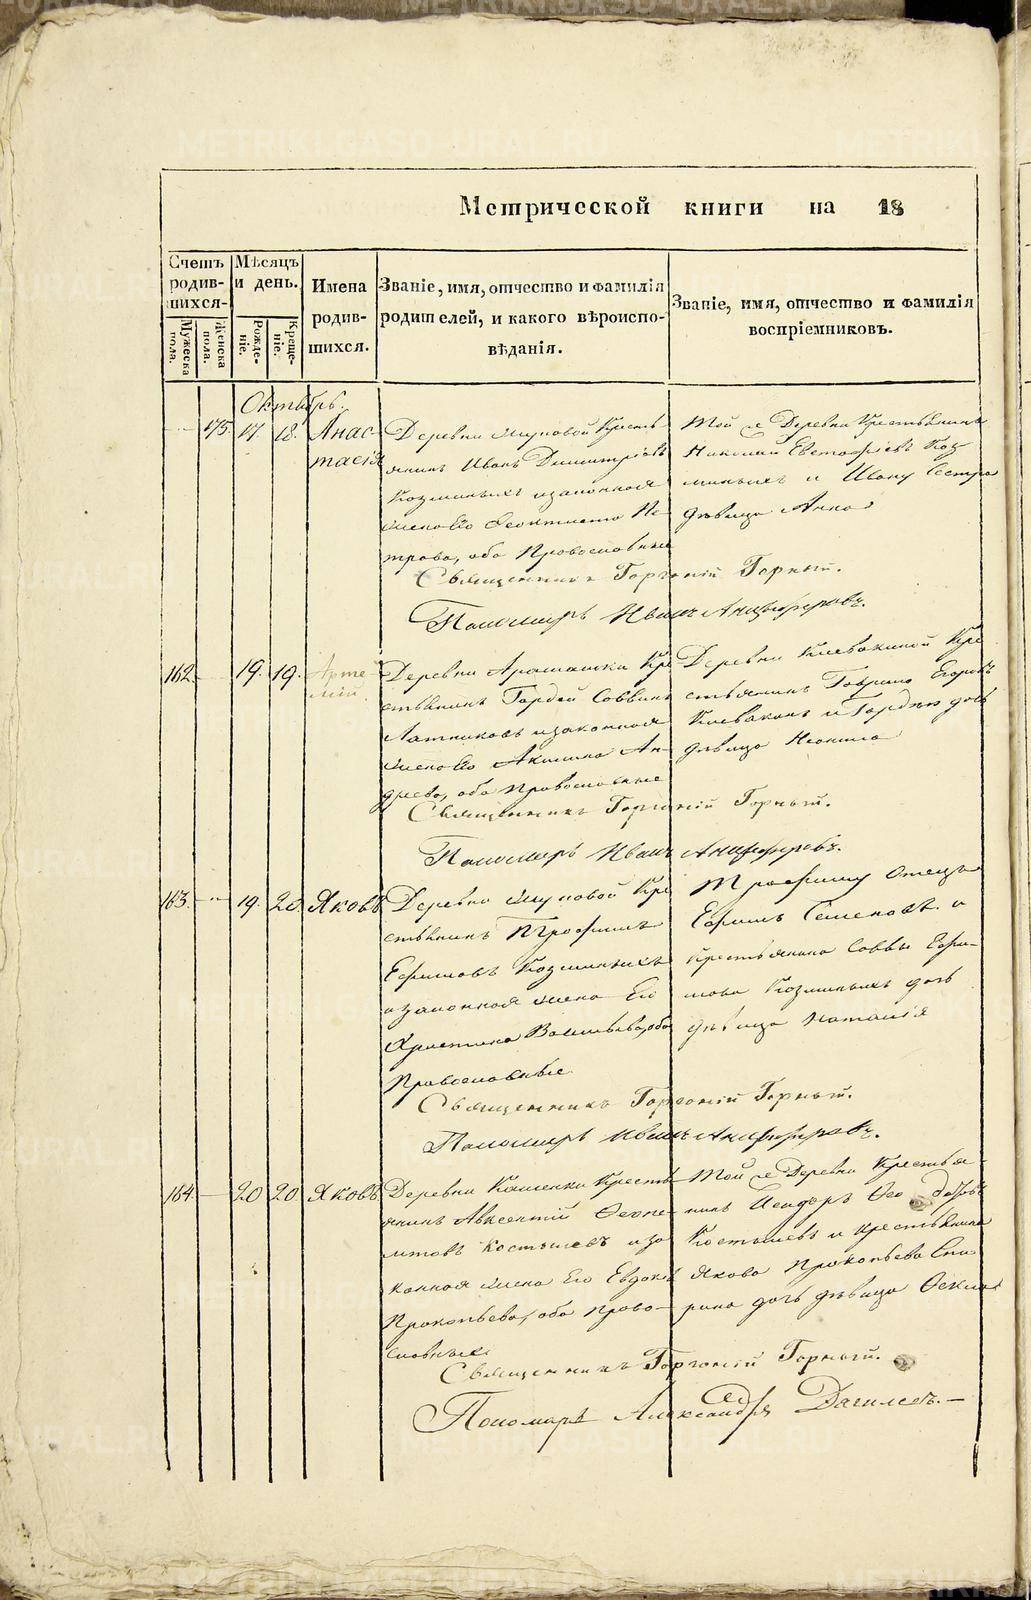 METRIKI.GASO-URAL.RU
Метрической книги на 18
Счетъ родив-шихся-
Мужеска пола.
Женска пола.
Мѣсяцъ и день.
Рожде-ніе.
Креще-ніе.
Имена родив-шихся.
Званіе, имя, отчество и фамилія родителей, и какого вѣроиспо-вѣданія.
Званіе, имя, отчество и фамилія воспріемниковъ.
Октябрь.
175. 17. 18. Анас-
тасія
Деревни Кресть
янинъ Иванъ Димитріевъ
Козминыхъ и законная
жена Его Феоктиста Пе-
трова, оба Православные
Той же Деревни Крестьянинъ
Николай Евстафіевъ Коз
миныхъ и Ивану Сестра
дѣвица Анна
Священникъ Горгоній Горный.
Пономарь Иванъ Анциферовъ.
162. 19. 19. Арте
мій.
Деревни Арамашки Кре
стьянинъ Гордей Саввинъ
Латниковъ и законная
жена Его Акилина Ан-
дреева, оба Православные
Деревни Клевакиной Кре
стьянинъ Гаврило Егоровъ
Клевакинъ и Гордѣю дочь
дѣвица Неонила
Священникъ Горгоній Горный.
Пономарь Иванъ Анциферовъ.
163. 19. 20. Яковъ
Деревни Кре
стьянинъ Трофимъ
Ефимовъ Козминыхъ
и законная жена Его
Христина Васильева, оба
Православные
Трофиму Отецъ
Ефимъ Семеновъ и
крестьянина Саввы Ефи-
мова Козминыхъ дочь
дѣвица Наталія
Священникъ Горгоній Горный.
Пономарь Иванъ Анциферовъ.
164. 20 20. Яковъ
Деревни Каменки Кресть
янинъ Авксентій Феоке-
митовъ Костылевъ и за
конная жена Его Евдокія
Прокопьева, оба право-
славные
Той же Деревни Крестья-
нинъ Исидоръ Ѳео доровъ
Костылевъ и крестьянина
Якова Прокопьева Спи
рина дочь дѣвица Ѳекла
Священникъ Горгоній Горный.
Пономарь Александръ Дагилевъ.